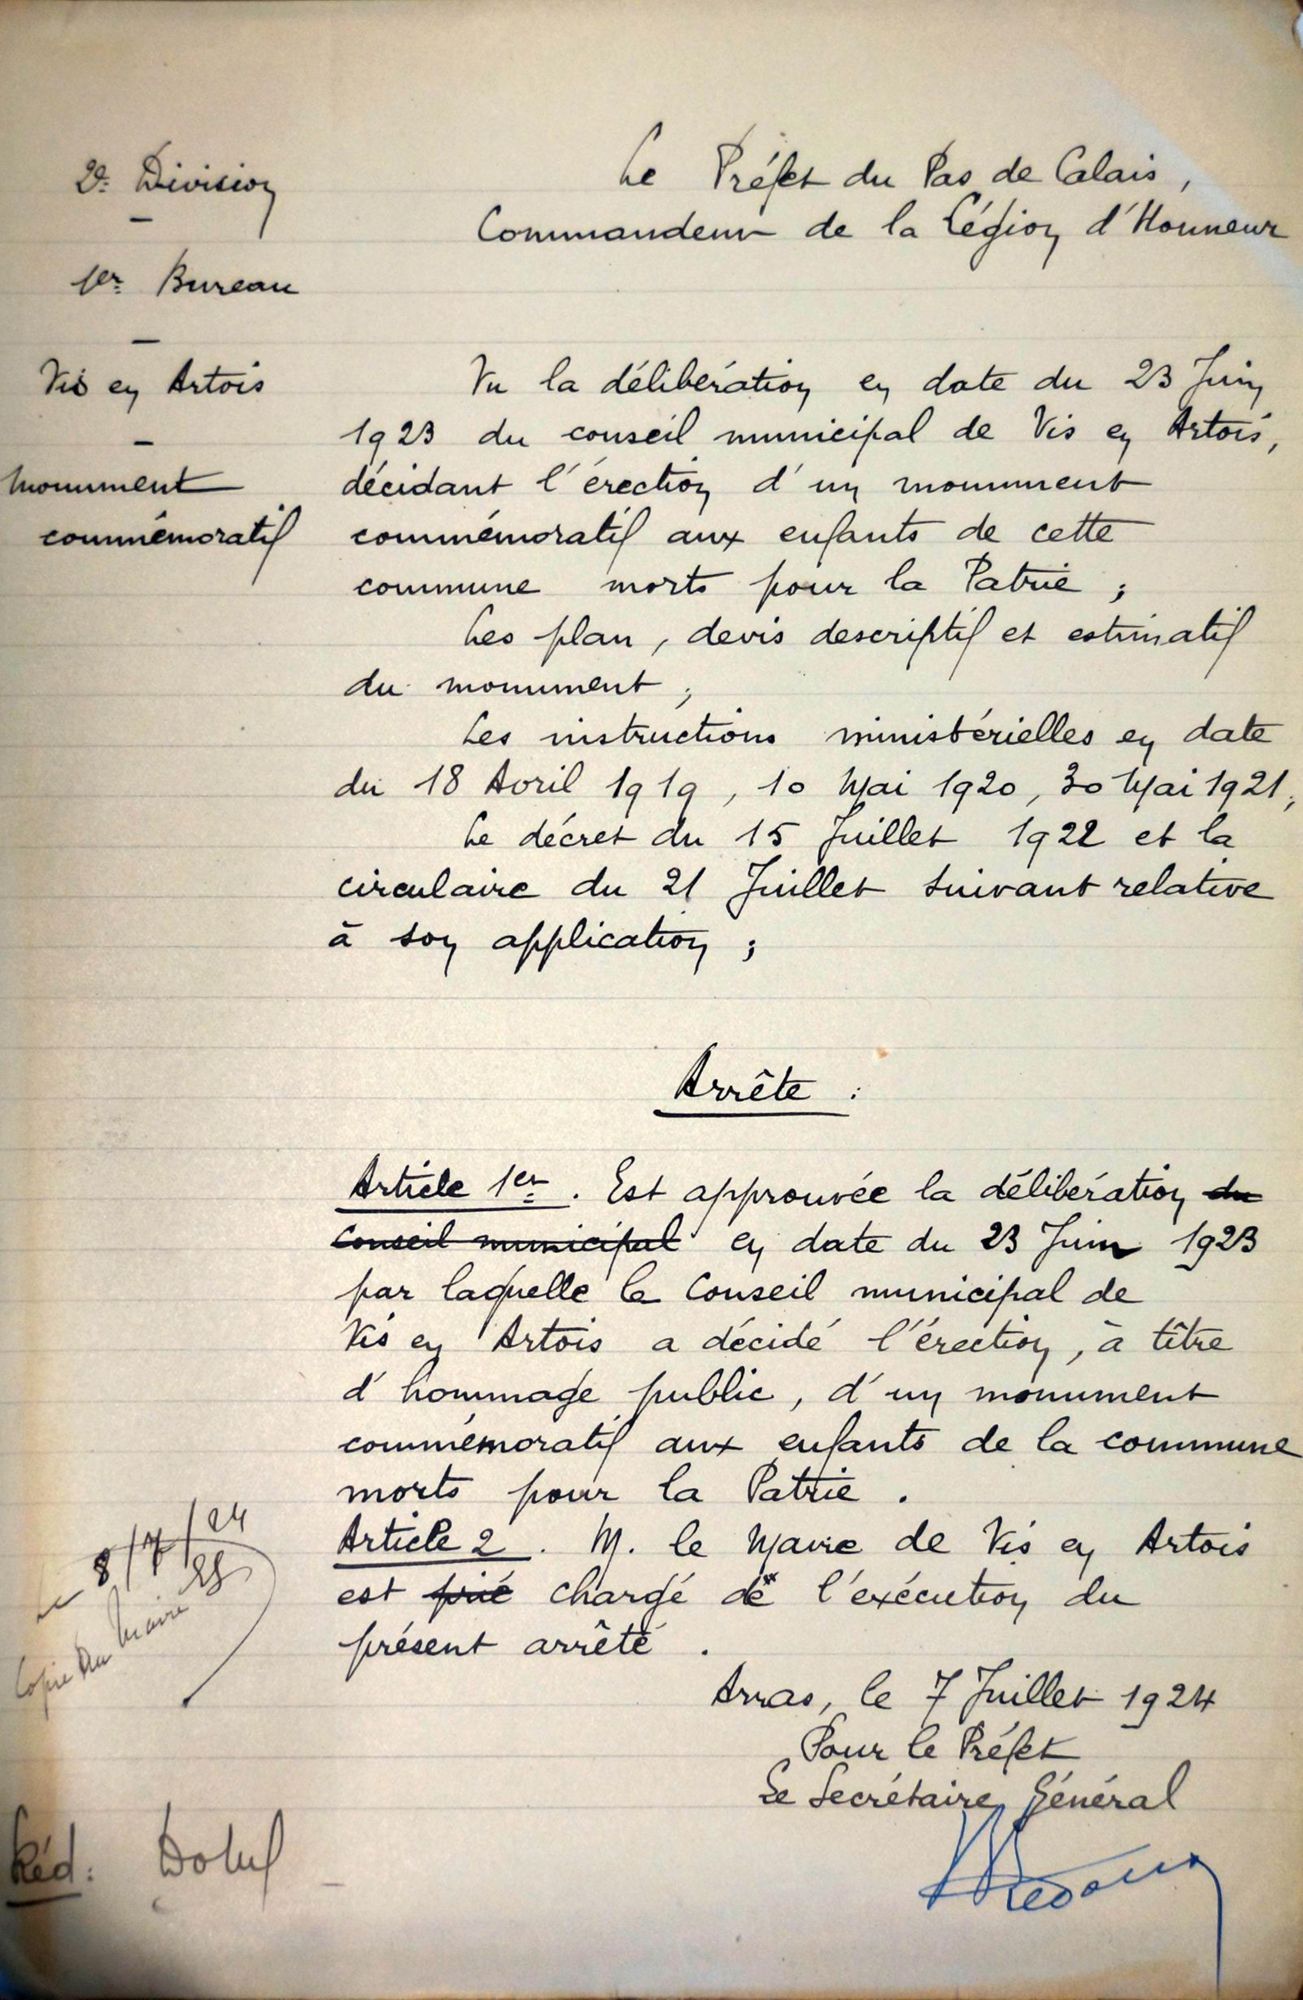 2e Division
—
1er Bureau
—
Vis en Artois
—
monument
commémoratif
Le Préfet du Pas de Calais,
Commandeur de la Légion d'Honneur
Vu la délibération en date du 23 Juin
1923 du conseil municipal de Vis en Artois,
décidant l'érection d'un monument
commémoratif aux enfants de cette
commune morts pour la Patrie ;
Les plan, devis descriptif et estimatif
du monument ;
Les instructions ministérielles en date
du 18 Avril 1919, 10 Mai 1920, 30 Mai 1921,
Le décret du 15 Juillet 1922 et la
circulaire du 21 Juillet suivant relative
à son application ;
Arrête :
Article 1er. Est approuvée la délibération du
Conseil municipal en date du 23 Juin 1923
par laquelle le Conseil municipal de
Vis en Artois a décidé l'érection, à titre
d'hommage public, d'un monument
commémoratif aux enfants de la commune
morts pour la Patrie.
Article 2. M. le Maire de Vis en Artois
est prié chargé de l'exécution du
présent arrêté.
Le 8/7/24
Copie au Maire
Arras, le 7 Juillet 1924
Pour le Préfet
Le Secrétaire Général
Réd :